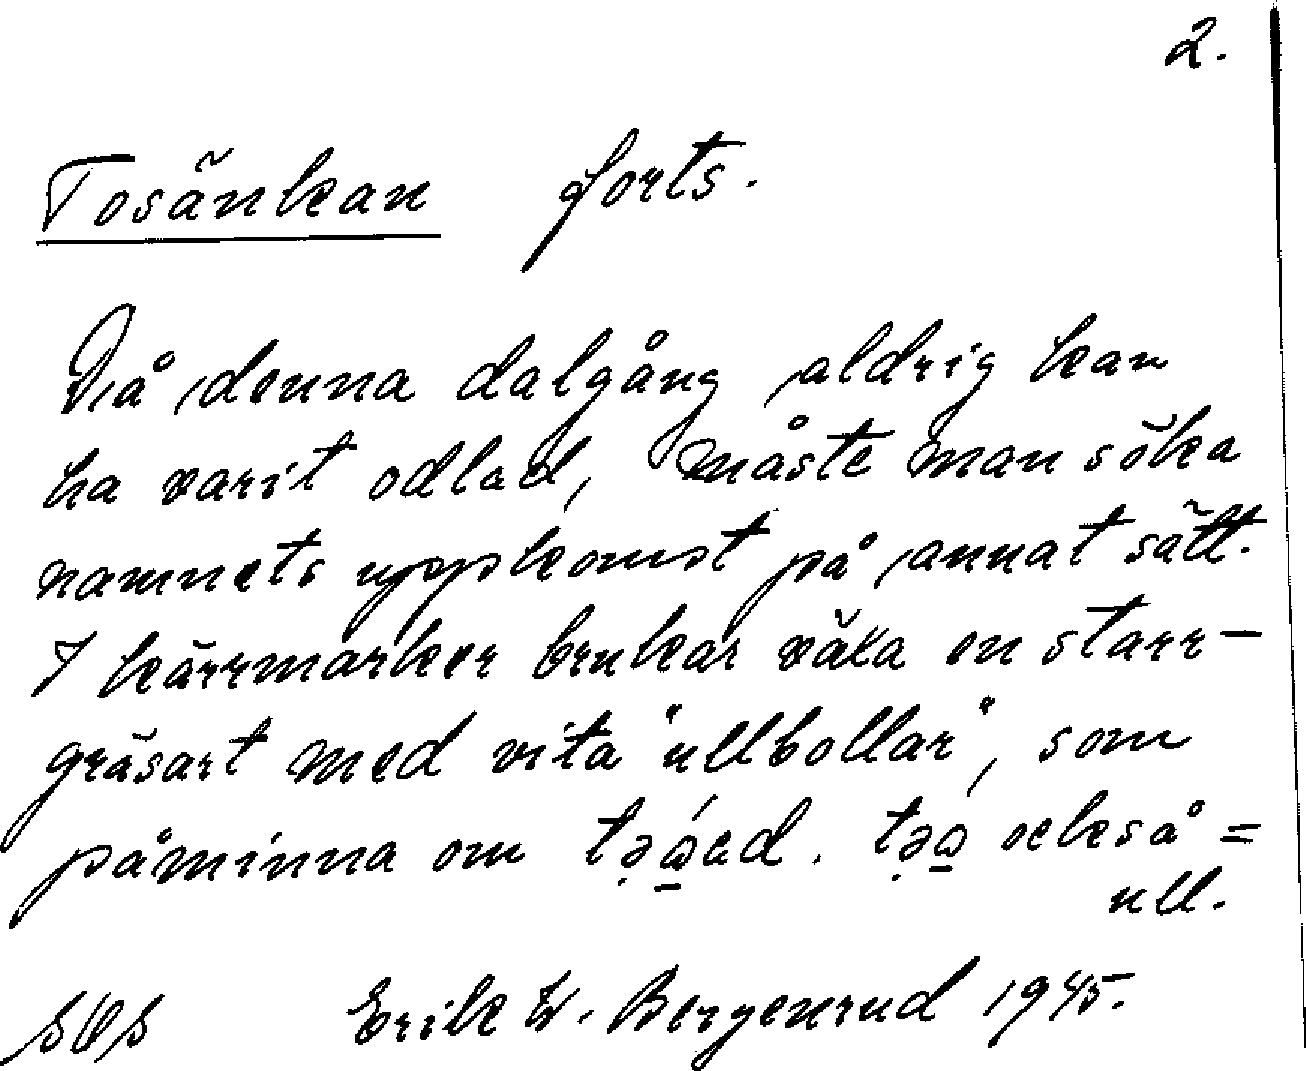 2.
Tosänkan forts.
Då denna dalgång aldrig kan
ha varit odlad, måste man söka
namnets uppkomst på annat sätt.
I kärrmarker brukar växa en starr-
gräsart med vita "ullbollar", som
påminna om också =
ull.
Erik W. Bergenrud 1945.